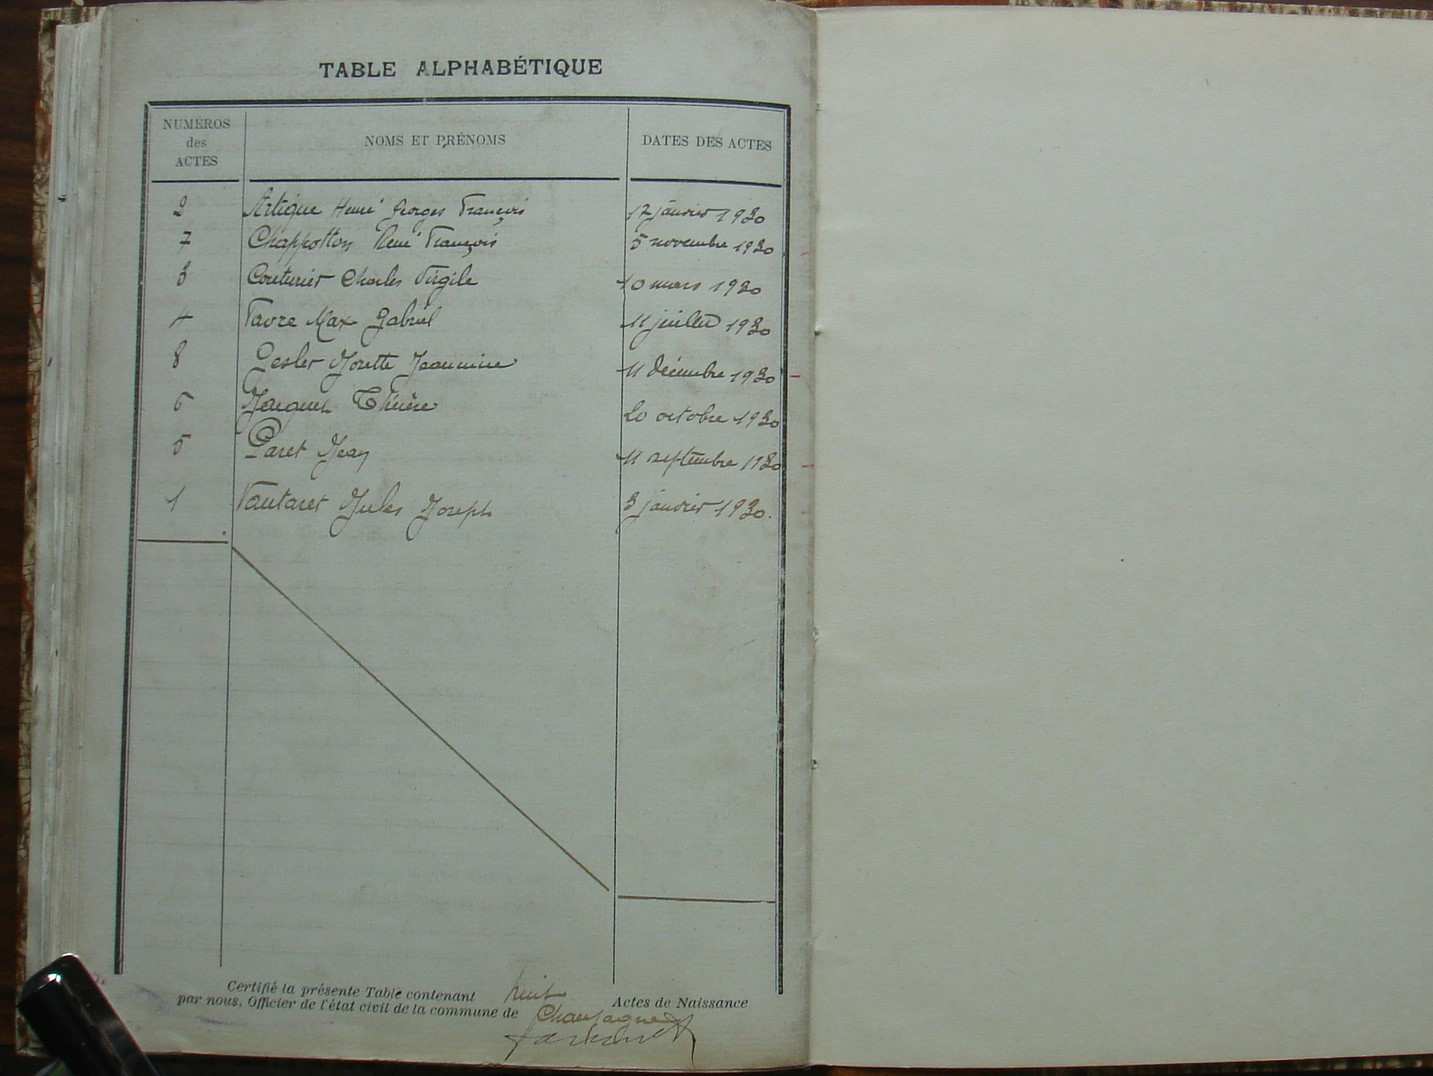 TABLE ALPHABÉTIQUE
NUMÉROS des ACTES NOMS ET PRÉNOMS DATES DES ACTES
2 Artique Henri Georges François 17 janvier 1930
7 Chappotton René François 5 novembre 1930
3 Couturier Charles Virgile 10 mars 1930
4 Favre Max Gabriel 11 juillet 1930
8 Gesler Josette Jeannine 11 décembre 1930
6 20 octobre 1930
5 Paret Jean 11 septembre 1930
1 Vautaret Jules Joseph 3 janvier 1930.
Certifié la présente Table contenant huit Actes de Naissance
par nous, Officier de l'état civil de la commune de